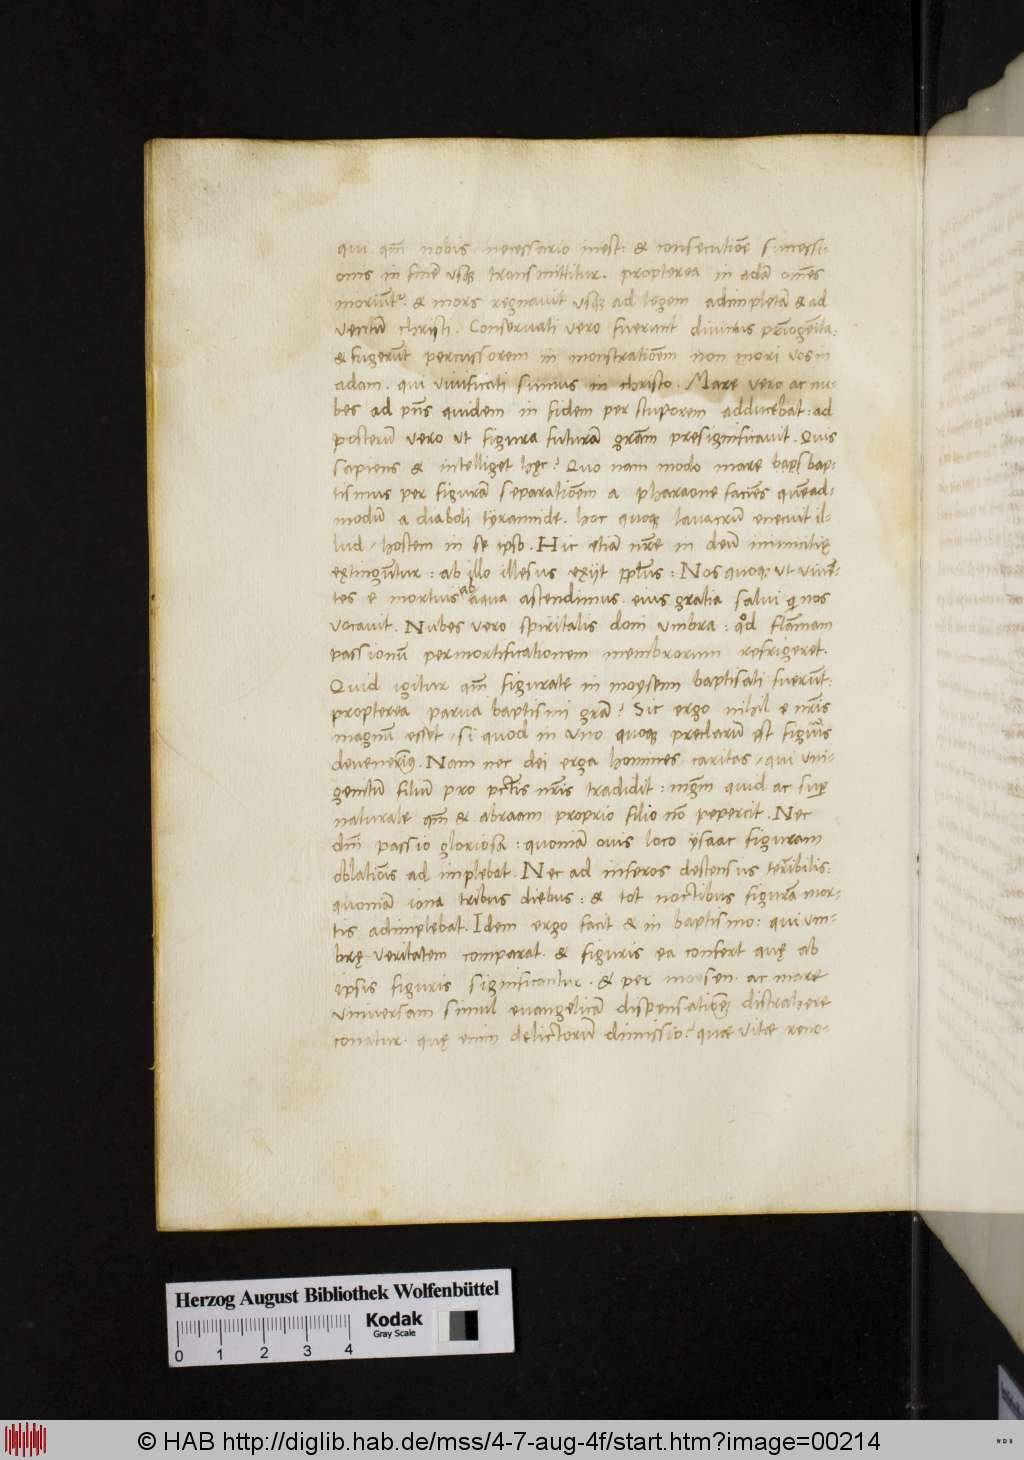 qui qm̄ nobis necessario inest: & consecutiōe successi-
onis in finē usqȝ transmittitur. propterea in adā om̄es
moriūtᵘʳ. & mors regnavit usqȝ ad legem adimpletā & ad
ventū christi. Conservati vero fuerunt divinitus prīogēita:
& fugerūt percussorem in monstratiōem non mori vos in
adam. qui vivificati sumus in christo. Mare vero ac nu-
bes ad pn̄s quidem in fidem per stuporem adducebat: ad
posterū vero ut figura futurā gr̄am presignificavit. Quis
sapiens & intelliget hęc? Quo nam modo mare bap-
tismus per figurā separatiōem a pharaone faciēs quēad-
modū a diaboli tÿrannide. hoc quoqȝ lavacrū enecuit il-
lud / hostem in se ipso. Hic etiā nr̄e in deū inimicitię
extingūtur: ab illo illesus exÿt ppl̄us: Nos quoqȝ ut vivē-
tes e mortuis ab aqua astendimus. eius gratia salvi qi nos
vocavit. Nubes vero spiritalis doni umbra: qd̊ flāmam
passionū permortificationem membrorum refrigeret.
Quid igitur qm̄ figurate in moysenn baptisati fuerūt:
propterea parva baptismi grā? Sic ergo nihil e nr̄is
magnū esset / si quod in uno quoqȝ preclarū est figuris
devenerimꝰ. Nam nec dei erga homines caritas / qui uni-
genitū filiū pro pctis nr̄is tradidit: magnū quid ac sup
naturale qm̄ & abraam proprio filio nō pepercit. Nec
dn̄i passio gloriosa: quoniā ovis loco ÿsaac figuram
oblatiōis ad implebat. Nec ad inferos destensus terribilis:
quoniā iona tribus diebus: & tot noctibus figurā mor-
tis adimplebat. Idem ergo facit & in baptismo: qui um-
brę veritatem comparat. & figuris ea confert quę ab
ipsis figuris significantur. & per moesen. ac mare
universam simul evangelicā dispensatiōem distrahere
conatur. quę enim delictorū dimissio? quae vitae reno-
Herzog August Bibliothek Wolfenbüttel
Kodak
Gray Scale
0 1 2 3 4
© HAB http://diglib.hab.de/mss/4-7-aug-4f/start.htm?image=00214